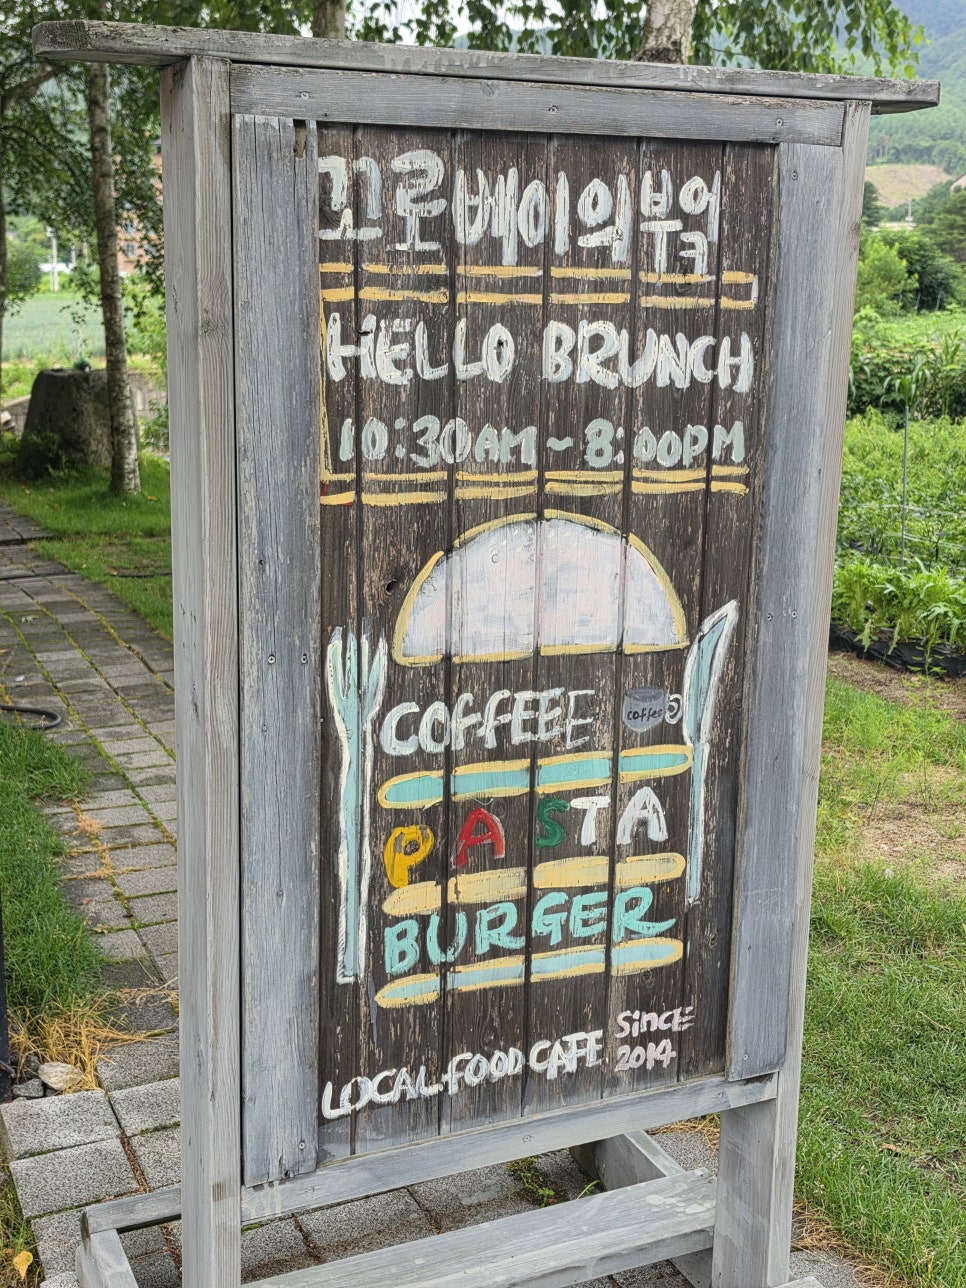 꼬로베이의부엌
HELLO BRUNCH
10:30AM ~ 8:00PM
COFFEEE
coffee
PASTA
BURGER
LOCAL FOOD CAFE SINCE 2014